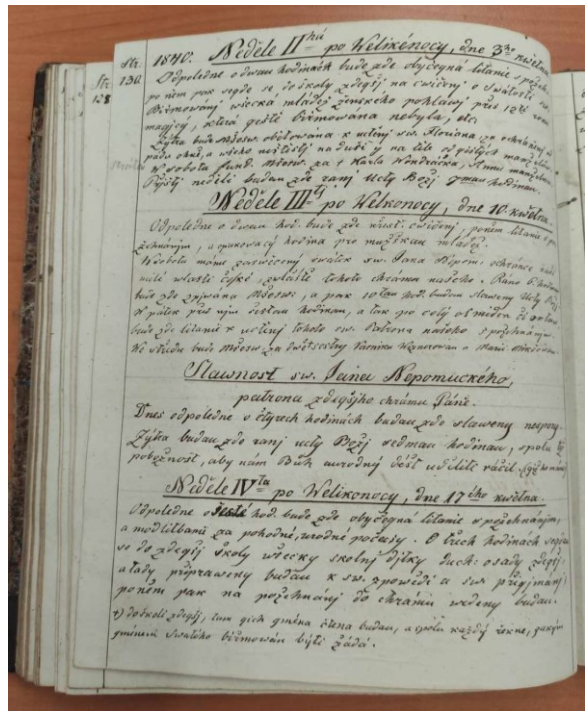 Str:
130.
Str.
128
1840. Neděle IIhá po Welikénocy, dne 3ho května.
Odpoledne o dwau hodinách bude zde obyčegná litanie s požeh.
po ném pak segde se do školy zdegšj na cwičenj o Swátosti sw.
Biřmowánj wšecka mládež ženského pohlawj přes 12 roků
magjcý, která gešté biřmowána nebyla, etc:
Zýtra bude Mšesw. obětowána k uctěnj sw. Floriana za ochránenj od
pádu ohně,
W sobotu fund. Mšesw. za + Karla Wondráčka, Annu manželku.
Přjští neděli budau zde ranj Ucty Božj 7mau hodinau.
Neděle IIItj po Welkonocy, dne 10. května.
Odpoledne o dwau hod. bude zde křest. cwičenj, poném litanie s po-
žehnánjm, a opakowacý hodina pro mužskau mládež.
W sobotu máme zaswěcený swátek sw. Jana Nepom. ochránce naší
milé wlasti české, zwláště tohoto chrámu našeho. Ráno 6. hodinau
bude zde zpjwaná Mšesw., a pak 10tau hod. budau slaweny Ucty Božj.
W pátek před njm šestau hodinau, a tak po celý osmiden
bude zde litanie k uctěnj tohoto sw. Patrona našeho s požehnánjm.
We středu bude Mšesw. za
Slawnost sw. Jana Nepomuckého,
patrona zdegšjho chrámu Páně.
Dnes odpoledne o čtyrech hodinách budau zde slaweny nešpory.
Zýtra budau zde ranj ucty Božj sedmau hodinau, spolu též
pobožnost, aby nám Bůh aurodný déšť uděliti ráčil.
Neděle IVta po Welikonocy, dne 17ého května.
Odpoledne o šesté hod. bude zde obyčegná litanie s požehnánjm,
a modlitbami za pohodné, aurodné počasy. O třech hodinách segdau
se do zdegšj školy wšecky školnj djtky duch: osady zdegšj,
a tady připraweny budau k sw. zpowědi a sw. přigjmánj
poném pak na požehnánj do chrámu wedeny budau.
+) do školi zdegšj, tam gich gména čtena budau, a spolu každý řekne, jakým
gménem Swatého biřmowán býti žádá.